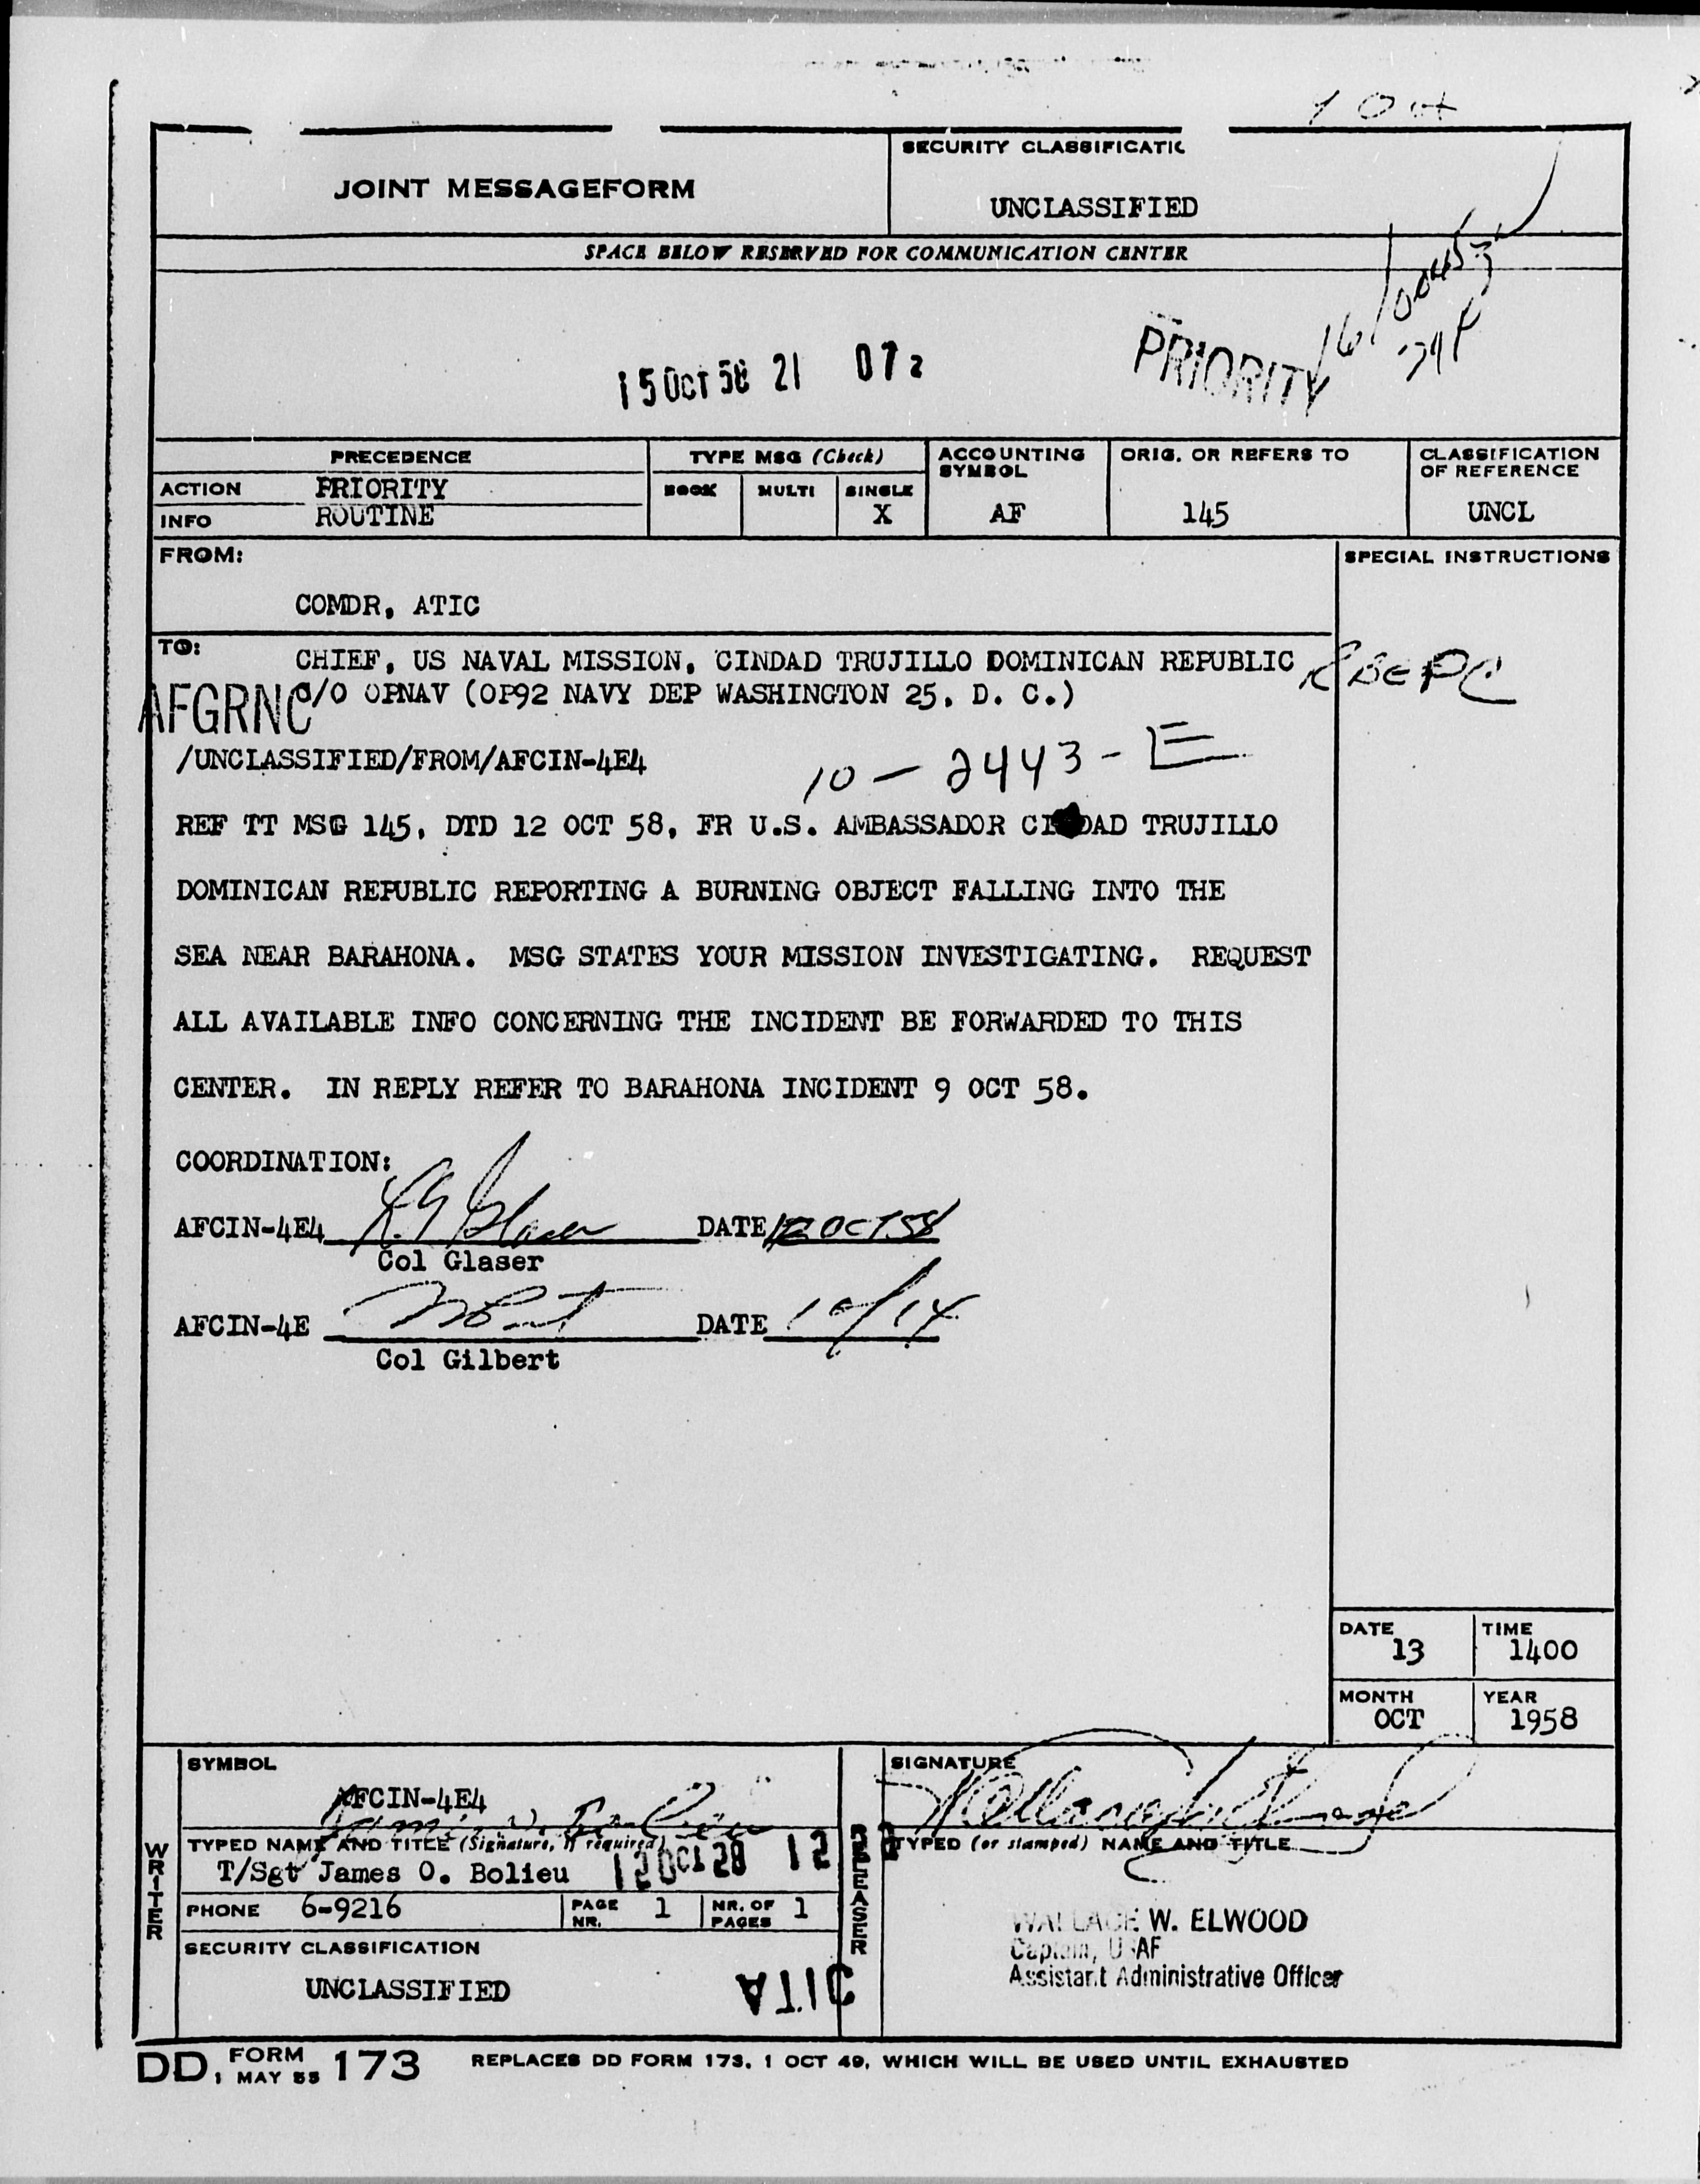 JOINT MESSAGEFORM
SECURITY CLASSIFICATIC
UNCLASSIFIED
SPACE BELOW RESERVED FOR COMMUNICATION CENTER
15 OCT 58 21 07z
PRIORITY
PRECEDENCE
TYPE MSG (Check)
ACCOUNTING SYMBOL
ORIG. OR REFERS TO
CLASSIFICATION OF REFERENCE
ACTION PRIORITY
BOOK MULTI SINGLE
INFO ROUTINE
X
AF
145
UNCL
FROM:
SPECIAL INSTRUCTIONS
COMDR, ATIC
TO:
CHIEF, US NAVAL MISSION, CINDAD TRUJILLO DOMINICAN REPUBLIC
C/O OPNAV (OP92 NAVY DEP WASHINGTON 25, D. C.)
RBEPC
AFGRNC
/UNCLASSIFIED/FROM/AFCIN-4E4
10-2443-E
REF TT MSG 145, DTD 12 OCT 58, FR U.S. AMBASSADOR CI DAD TRUJILLO
DOMINICAN REPUBLIC REPORTING A BURNING OBJECT FALLING INTO THE
SEA NEAR BARAHONA. MSG STATES YOUR MISSION INVESTIGATING. REQUEST
ALL AVAILABLE INFO CONCERNING THE INCIDENT BE FORWARDED TO THIS
CENTER. IN REPLY REFER TO BARAHONA INCIDENT 9 OCT 58.
COORDINATION:
AFCIN-4E4 DATE OCT 58
Col Glaser
AFCIN-4E DATE 10/14
Col Gilbert
DATE 13
TIME 1400
MONTH OCT
YEAR 1958
SYMBOL
AFCIN-4E4
SIGNATURE
WRITER
TYPED NAME AND TITLE (Signature, if required)
T/Sgt James O. Bolieu
RELEASER
TYPED (or stamped) NAME AND TITLE
PHONE 6-9216
PAGE NR. 1
NR. OF PAGES 1
WALLACE W. ELWOOD
Captain, USAF
Assistant Administrative Officer
SECURITY CLASSIFICATION
UNCLASSIFIED
ATIC
DD, FORM 1 MAY 55 173
REPLACES DD FORM 173, 1 OCT 49, WHICH WILL BE USED UNTIL EXHAUSTED